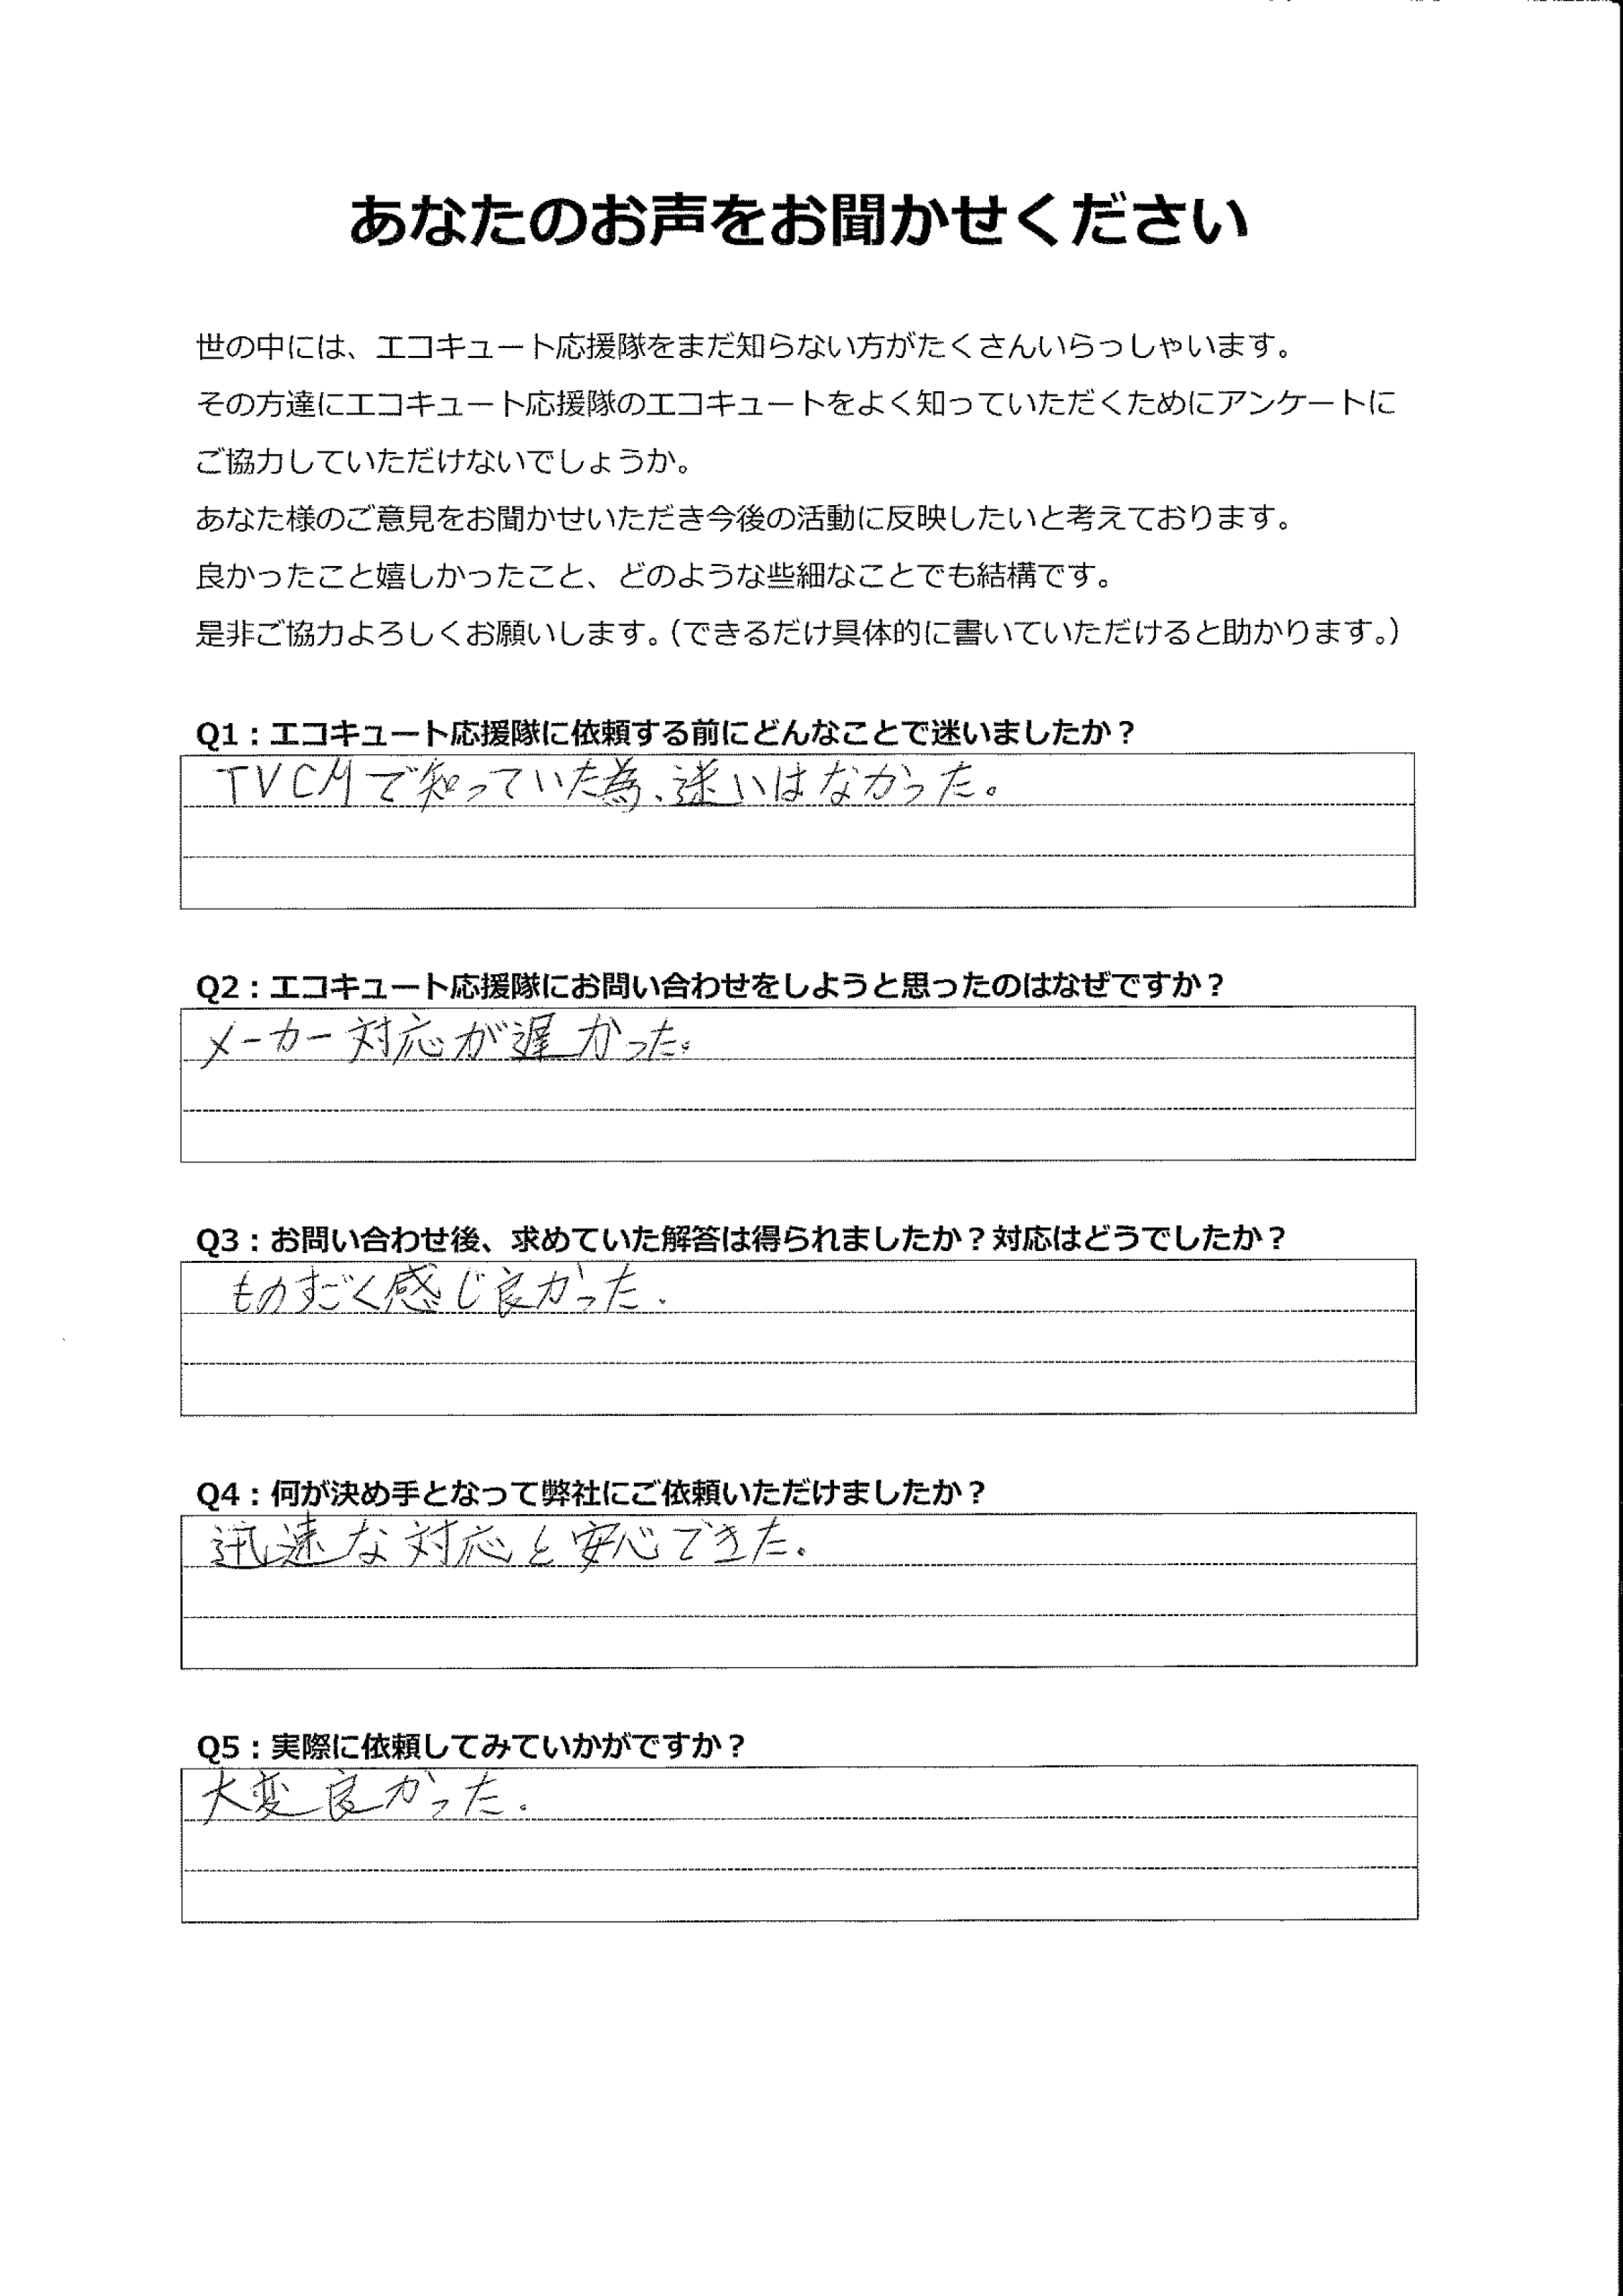 あなたのお声をお聞かせください
世の中には、エコキュート応援隊をまだ知らない方がたくさんいらっしゃいます。
その方達にエコキュート応援隊のエコキュートをよく知っていただくためにアンケートに
ご協力していただけないでしょうか。
あなた様のご意見をお聞かせいただき今後の活動に反映したいと考えております。
良かったこと嬉しかったこと、どのような些細なことでも結構です。
是非ご協力よろしくお願いします。（できるだけ具体的に書いていただけると助かります。）
Q1：エコキュート応援隊に依頼する前にどんなことで迷いましたか？
TVCMで知っていた為、迷いはなかった。
Q2：エコキュート応援隊にお問い合わせをしようと思ったのはなぜですか？
メーカー対応が遅かった。
Q3：お問い合わせ後、求めていた解答は得られましたか？対応はどうでしたか？
ものすごく感じ良かった.
Q4：何が決め手となって弊社にご依頼いただけましたか？
迅速な対応と安心できた.
Q5：実際に依頼してみていかがですか？
大変良かった.